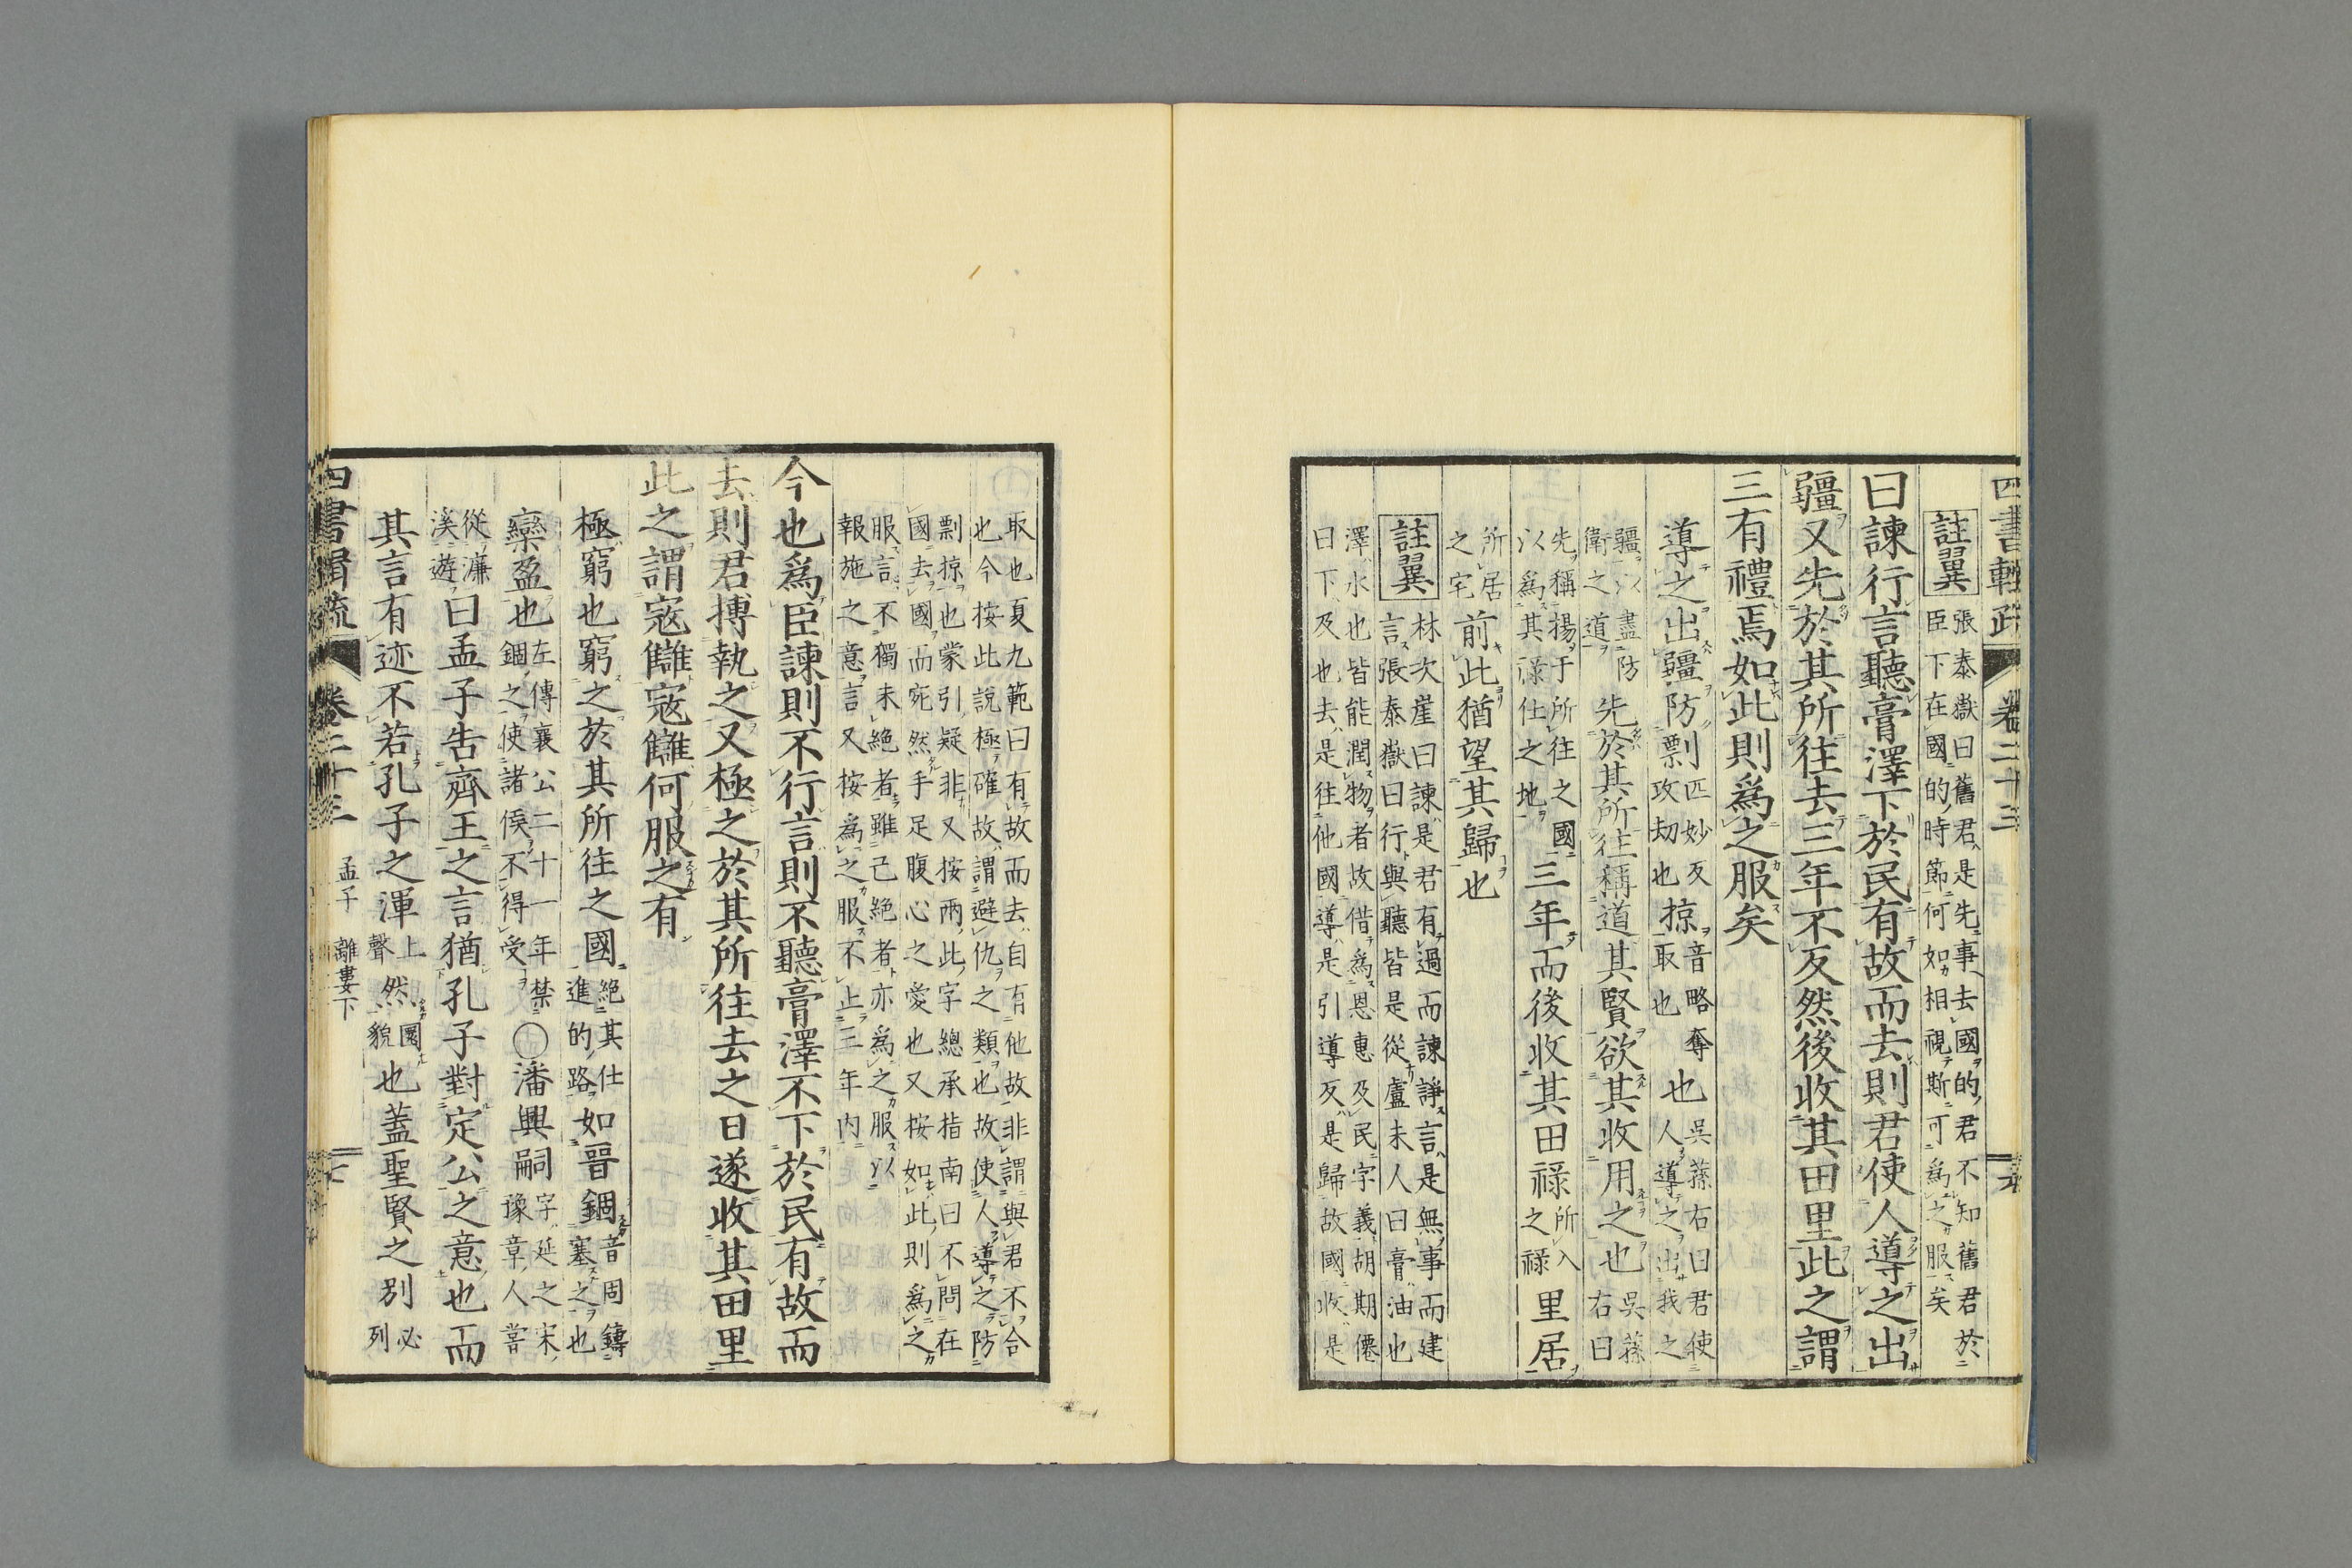 四書輯疏 卷二十三
註翼 張泰嶽曰舊君是先事去國的君不知舊君於臣下在國的時節何如相視斯可爲之服矣
曰諫行言聽膏澤下於民有故而去則君使人導之出
疆又先於其所往去三年不反然後收其田里此之謂
三有禮焉如此則爲之服矣
導之出疆防剽匹妙反攻劫也掠音略奪取也也吳蓀右曰君使人導之出我之
疆以盡防衛之道先於其所往稱道其賢欲其收用之也吳蓀右曰
先稱揚于所往之國以爲其祿仕之地三年而後收其田祿所入之祿里居
所居之宅前此猶望其歸也
註翼 林次崖曰諫是君有過而諫諍言是無事而建言張泰嶽曰行與聽皆是從盧未人曰膏油也
澤水也皆能潤物者故借爲恩惠及民字義胡期僊曰下及也去是往他國導是引導反是歸故國收是
取也夏九範曰有故而去自有他故非謂與君不合也今按此說極確故謂避仇之類也故使人導之防
剽掠也蒙引疑非又按兩此字總承指南曰不問在國去國而宛然手足腹心之愛也又按如此則爲之
服言不獨未絕者雖已絕者亦爲之服以報施之意言又按爲之服不止三年内
今也爲臣諫則不行言則不聽膏澤不下於民有故而
去則君搏執之又極之於其所往去之日遂收其田里
此之謂寇讎寇讎何服之有
極窮也窮之於其所往之國絕其仕進的路如晉錮音周鑄塞之也
欒盈也左傳襄公二十一年禁錮之使諸侯不得受〇潘興嗣字延之宋豫章人嘗
從濂溪遊曰孟子告齊王之言猶孔子對定公之意也而
其言有迹不若孔子之渾上聲然圜貌也蓋聖賢之別必列
四書輯疏 卷二十三 孟子 離婁下 七